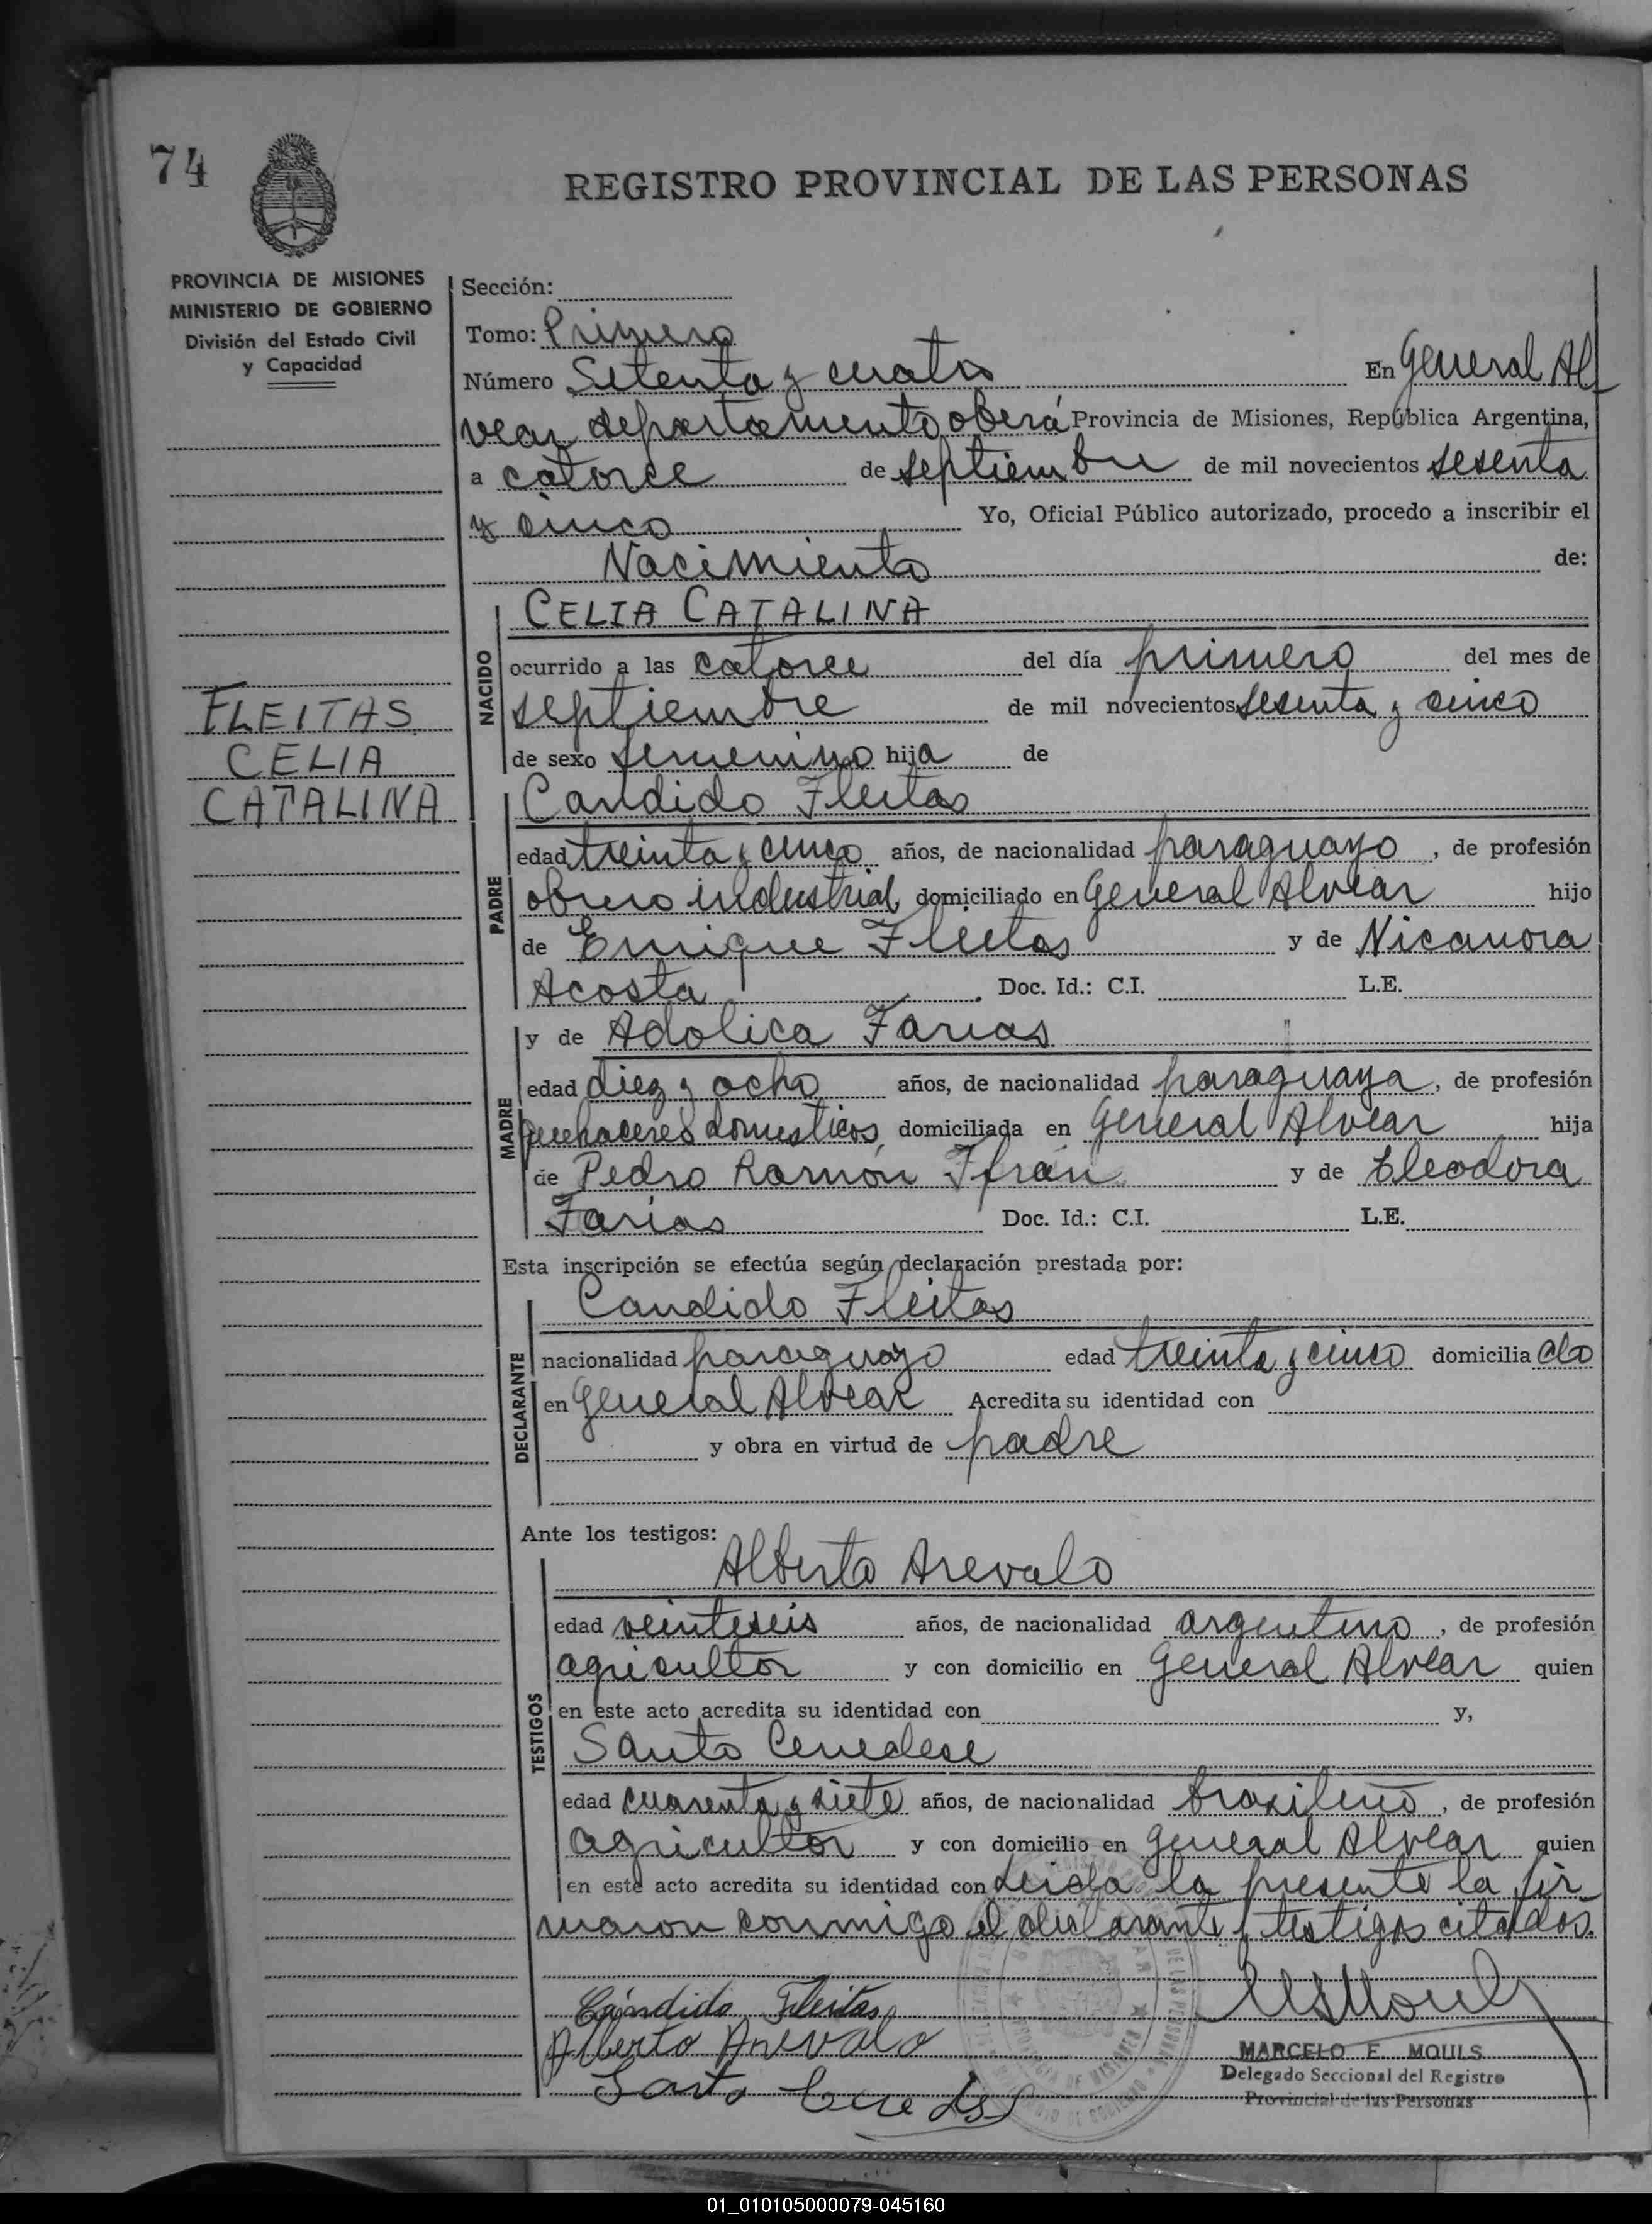 74
REGISTRO PROVINCIAL DE LAS PERSONAS
PROVINCIA DE MISIONES
MINISTERIO DE GOBIERNO
División del Estado Civil
y Capacidad
Sección:
Tomo: Primero
Número Setenta y cuatro En General Al-
vear departamento oberá Provincia de Misiones, República Argentina,
a catorce de septiembre de mil novecientos sesenta
y cinco Yo, Oficial Público autorizado, procedo a inscribir el
Nacimiento de:
NACIDO
CELIA CATALINA
ocurrido a las catorce del día primero del mes de
septiembre de mil novecientos sesenta y cinco
de sexo femenino hija de
FLEITAS
CELIA
CATALINA
PADRE
Candido Fleitas
edad treinta y cinco años, de nacionalidad paraguayo, de profesión
obrero industrial domiciliado en General Alvear hijo
de Enrique Fleitas y de Nicanora
Acosta. Doc. Id.: C.I. L.E.
MADRE
y de Adolica Farias
edad diez y ocho años, de nacionalidad paraguaya, de profesión
quehaceres domesticos domiciliada en General Alvear hija
de Pedro Ramón Ifrán y de Eleodora
Farias Doc. Id.: C.I. L.E.
Esta inscripción se efectúa según declaración prestada por:
DECLARANTE
Candido Fleitas
nacionalidad paraguayo edad treinta y cinco domicilia do
en General Alvear Acredita su identidad con
y obra en virtud de padre
Ante los testigos:
TESTIGOS
Alberto Arevalo
edad veinteseis años, de nacionalidad argentino, de profesión
agricultor y con domicilio en General Alvear quien
en este acto acredita su identidad con y,
Santo Cenedese
edad cuarenta y siete años, de nacionalidad brasileño, de profesión
agricultor y con domicilio en General Alvear quien
en este acto acredita su identidad con Leida la presente la fir-
maron conmigo el declarante y testigos citados.
Cándido Fleitas
Alberto Arevalo
Santo Cenedese
MARCELO E. MOULS
Delegado Seccional del Registro
Provincial de las Personas
01_010105000079-045160